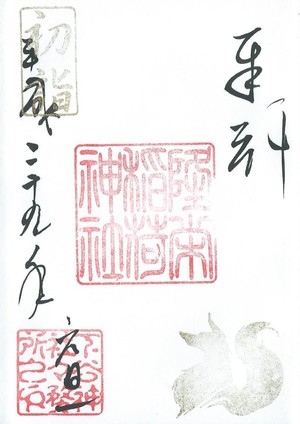 奉拝
隆栄
稲荷
神社
初詣
平成二十九年
元旦